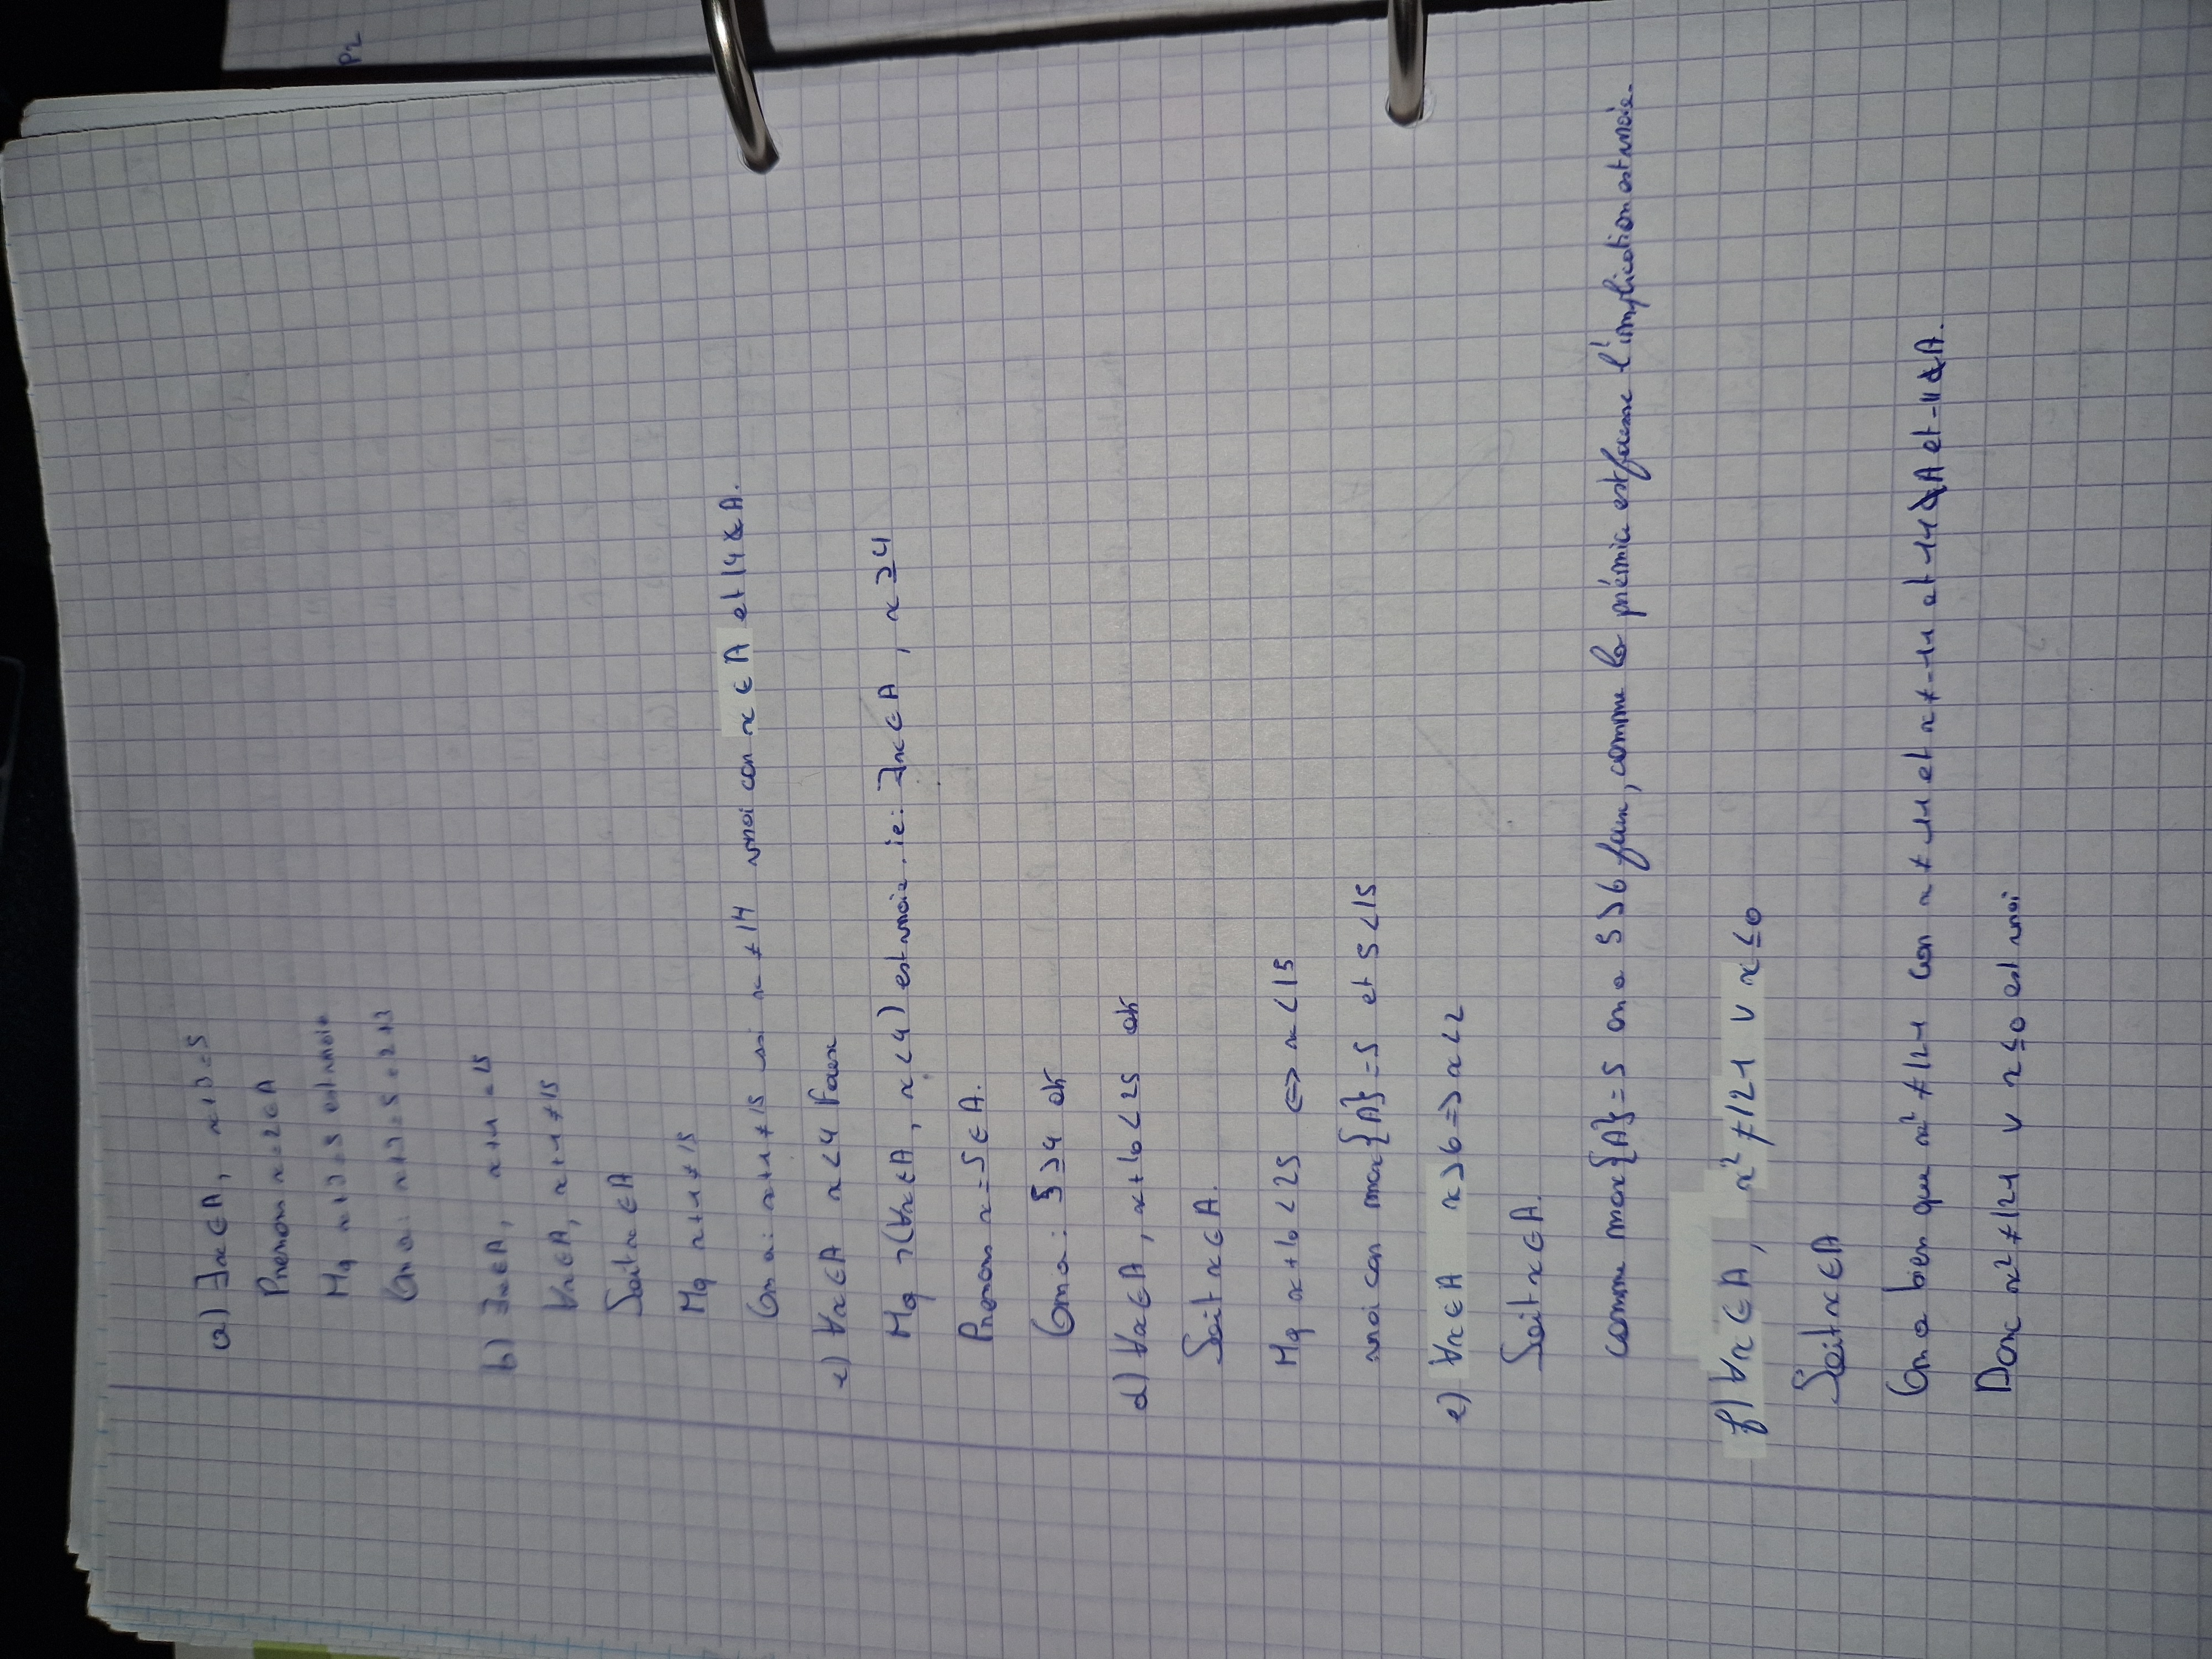 a) ∃x∈A, x+3=5
Prenons x=2∈A
Mq x+3=5 est vraie
On a: x+3=5=2+3
b) ∃x∈A, x+1=15
∀x∈A, x+1≠15
Soit x∈A
Mq x+1≠15
On a: x+1≠15 ssi x≠14 vrai car x∈A et 14∉A.
c) ∀x∈A x<4 Faux
Mq ¬(∀x∈A, x<4) est vraie. ie: ∃x∈A, x≥4
Prenons x=5∈A.
On a: 5≥4 ok
d) ∀x∈A, x+10<25 ok
Soit x∈A.
Mq x+10<25 ⇔ x<15
vrai car max{A}=5 et 5<15
e) ∀x∈A x>6 ⇒ x<2
Soit x∈A.
comme max{A}=5 on a 5>6 faux, comme la prémice est fausse l'implication est vraie.
f) ∀x∈A, x²≠121 ∨ x≤0
Soit x∈A
On a bien que x²≠121 car x≠11 et x≠-11 et 11∉A et -11∉A.
Donc x²≠121 ∨ x≤0 est vrai
P2